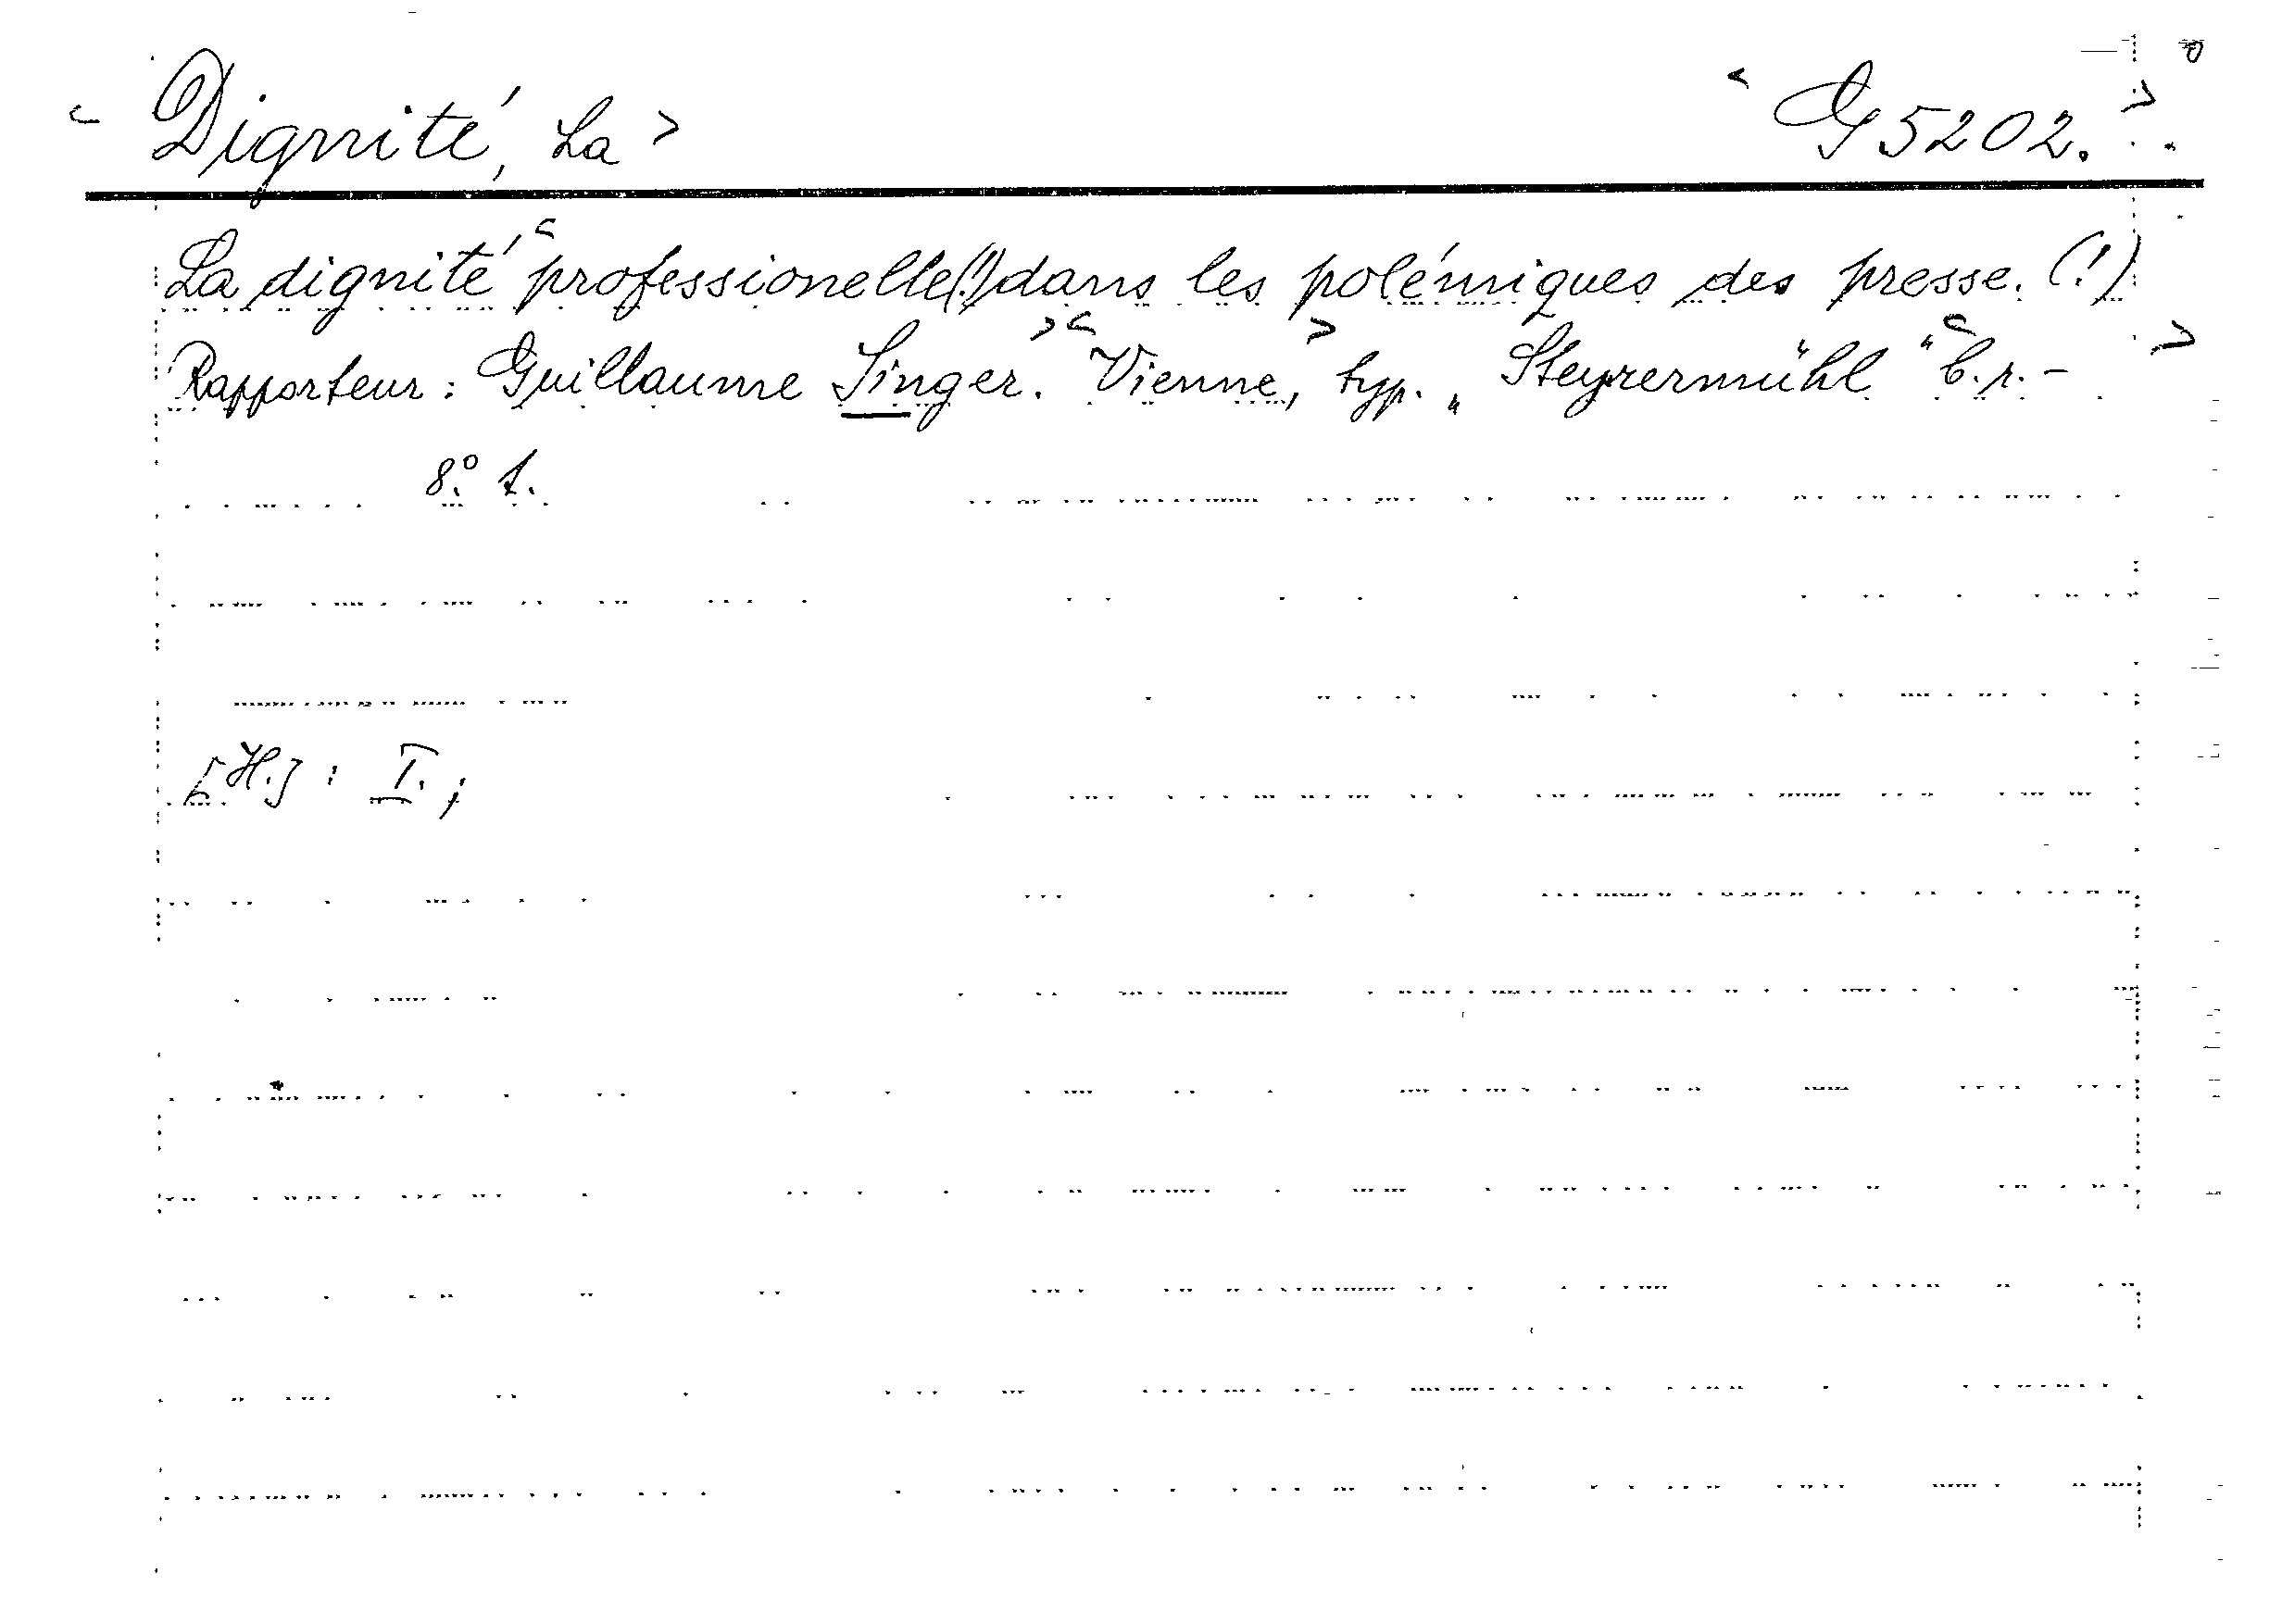 < Dignité, La > < G 5202. >
La dignité < professionelle(!) dans les polémiques des presse. (!)
Rapporteur: Guillaume Singer. > < Vienne, > typ. „Steyrermühl“ < b.r. - >
8.° 1.
[H.]: I.;